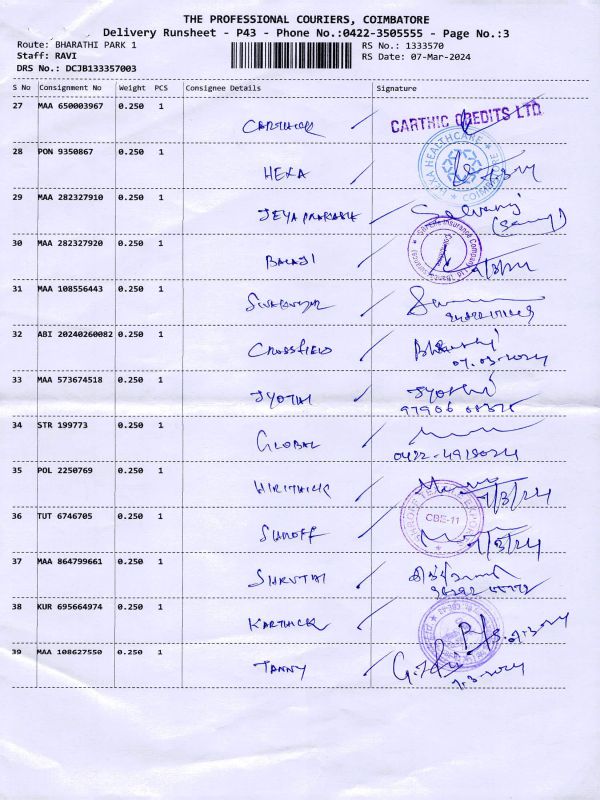 THE PROFESSIONAL COURIERS, COIMBATORE
Delivery Runsheet - P43 - Phone No.:0422-3505555 - Page No.:3
Route: BHARATHI PARK 1
RS No.: 1333570
Staff: RAVI
RS Date: 07-Mar-2024
DRS No.: DCJB133357003
S No Consignment No Weight PCS Consignee Details Signature
27 MAA 650003967 0.250 1 CARTHICK CARTHIC CREDITS LTD
28 PON 9350867 0.250 1 HEXA HEXA HEALTHCARE
29 MAA 282327910 0.250 1 JEYA PRAKASH Selvaraj
30 MAA 282327920 0.250 1 BALAJI 7/3/24
31 MAA 108556443 0.250 1
32 ABI 20240260082 0.250 1 CROSSFIELD
07.03.2024
33 MAA 573674518 0.250 1 JYOTHI Jyothi
34 STR 199773 0.250 1 GLOBAL
0422-4918024
35 POL 2250769 0.250 1 HIRITHICK 7/3/24
36 TUT 6746705 0.250 1 SHROFF CBE-11 7/3/24
37 MAA 864799661 0.250 1 SHRUTHI
38 KUR 695664974 0.250 1 KARTHICK
39 MAA 108627550 0.250 1 TANNY
7.3.2024